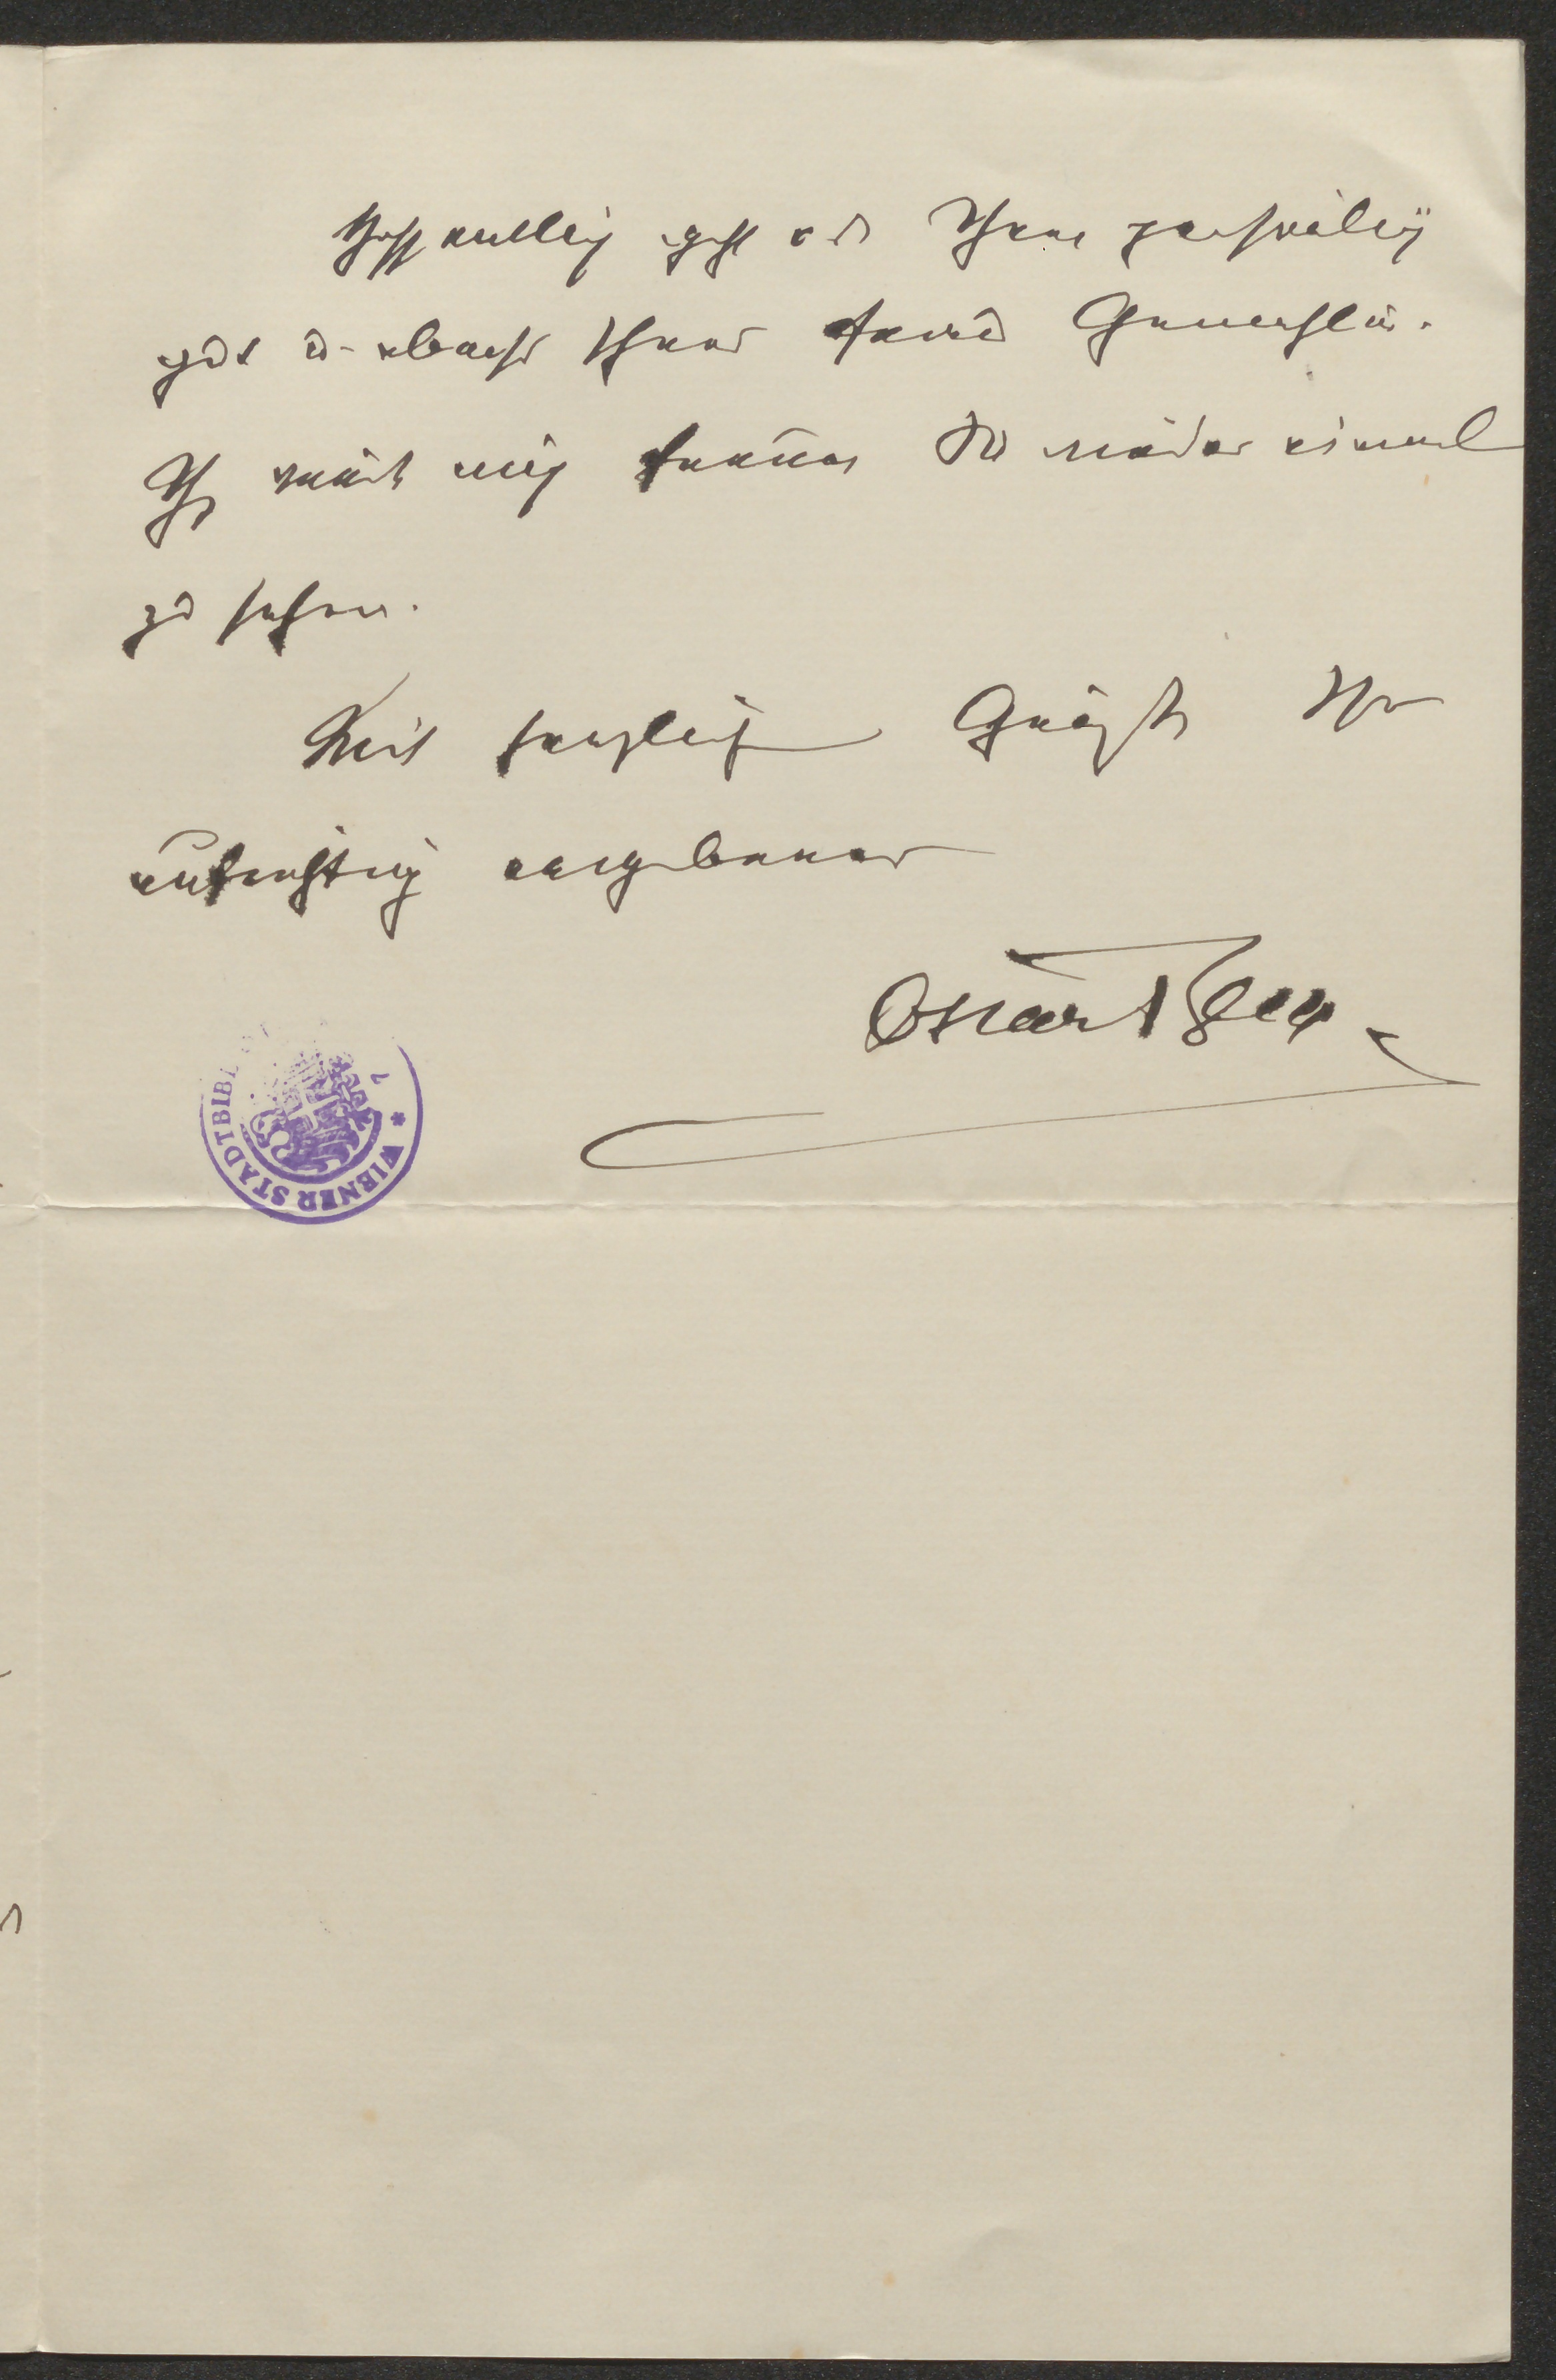 Hoffentlich geht es Ihnen persönlich
gut u. ebenso Ihrer Frau Gemahlin.
Ich würde mich freuen Sie wieder einmal
zu sehen.
Mit herzlichen Grüßen Ihr
aufrichtig ergebener
Oskar
WIENER STADTBIBL